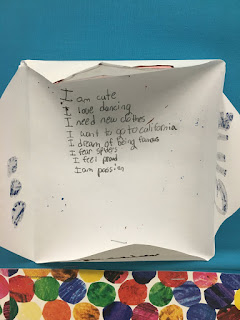 I am cute
I love dancing
I need new clothes
I want to go to california
I dream of being famous
I fear spiders
I feel proud
I am